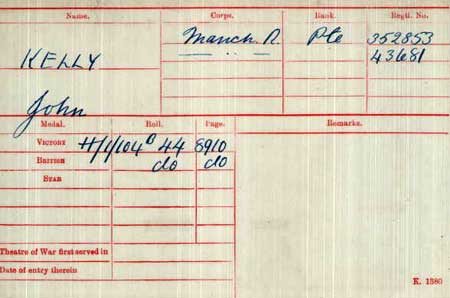 Name. Corps. Rank. Regtl. No.
KELLY Manch. R. Pte 352853
43681
John
Medal. Roll. Page. Remarks.
Victory H/1/104 B 44 8910
British do do
Star
Theatre of War first served in
Date of entry therein
K. 1380